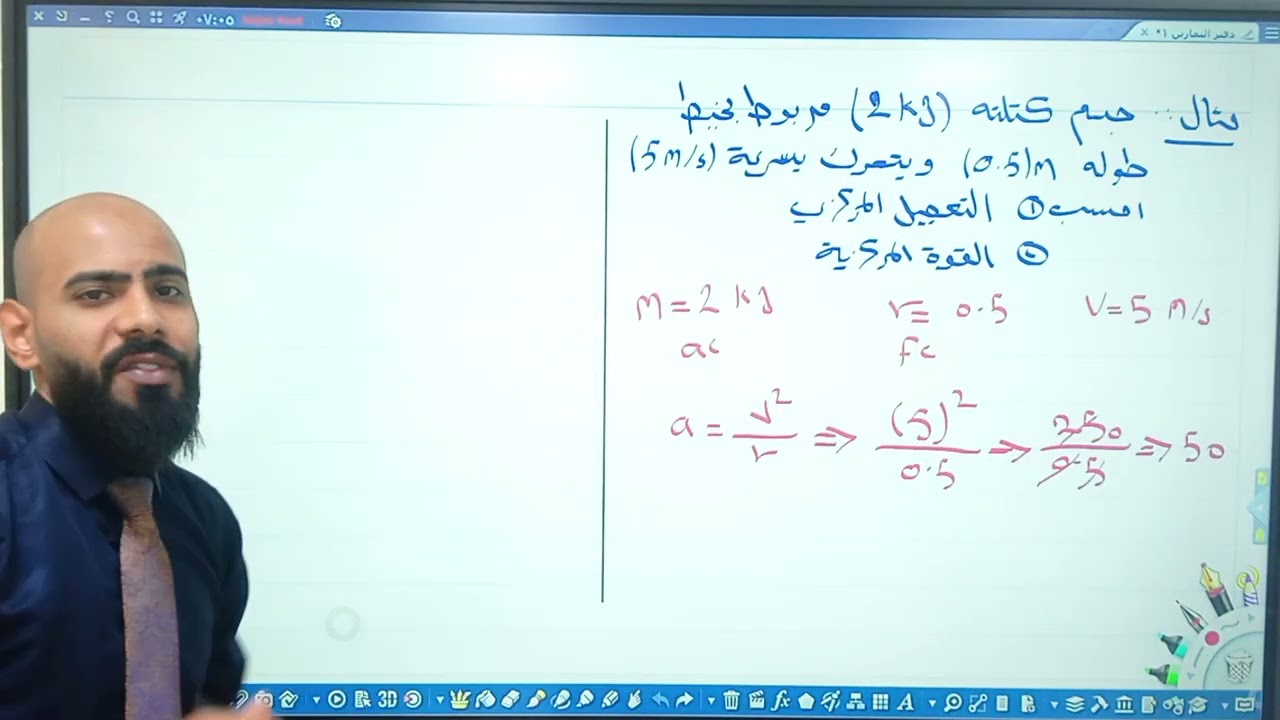 ٠٧:٠٥
دفتر التمارين ١*
مثال: جسم كتلته (2kg) مربوط بخيط
طوله (0.5)m ويتحرك بسرعة (5m/s)
احسب ① التعجيل المركزي
② القوة المركزية
m = 2 kg r = 0.5 v = 5 m/s
ac fc
a = v²/r ⇒ (5)²/0.5 ⇒ 250/05 ⇒ 50
3D fx A